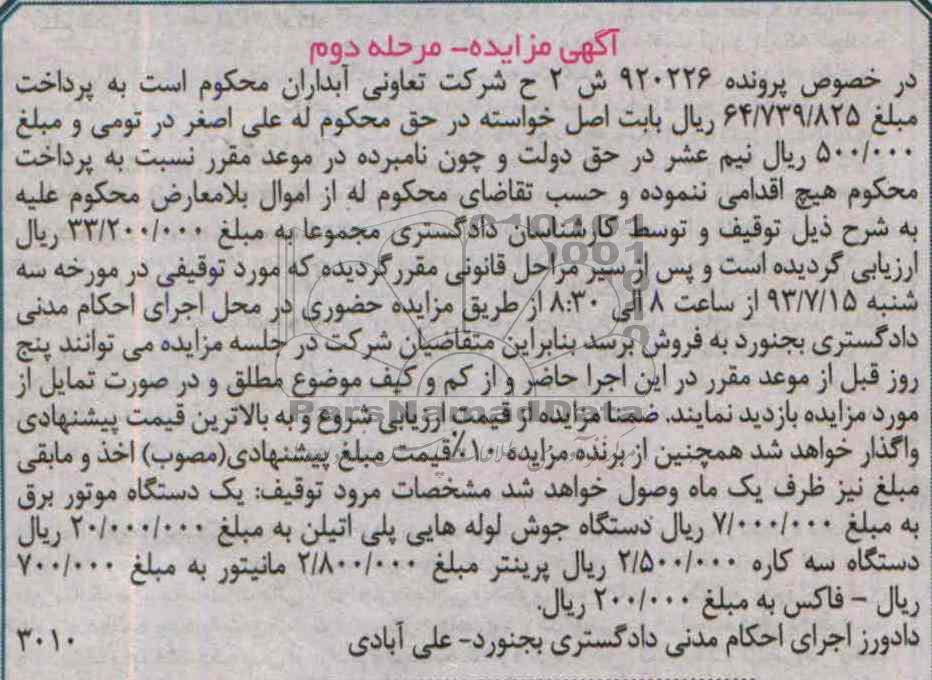 آگهی مزایده- مرحله دوم
در خصوص پرونده ۹۲۰۲۲۶ ش ۲ ح شرکت تعاونی آبداران محکوم است به پرداخت
مبلغ ۶۴/۷۳۹/۸۲۵ ریال بابت اصل خواسته در حق محکوم له علی اصغر در تومی و مبلغ
۵۰۰/۰۰۰ ریال نیم عشر در حق دولت و چون نامبرده در موعد مقرر نسبت به پرداخت
محکوم هیچ اقدامی ننموده و حسب تقاضای محکوم له از اموال بلامعارض محکوم علیه
به شرح ذیل توقیف و توسط کارشناسان دادگستری مجموعا به مبلغ ۳۳/۲۰۰/۰۰۰ ریال
ارزیابی گردیده است و پس از سیر مراحل قانونی مقرر گردیده که مورد توقیفی در مورخه سه
شنبه ۹۳/۷/۱۵ از ساعت ۸ الی ۸:۳۰ از طریق مزایده حضوری در محل اجرای احکام مدنی
دادگستری بجنورد به فروش برسد بنابراین متقاضیان شرکت در جلسه مزایده می توانند پنج
روز قبل از موعد مقرر در این اجرا حاضر و از کم و کیف موضوع مطلق و در صورت تمایل از
مورد مزایده بازدید نمایند. ضمنا مزایده از قیمت ارزیابی شروع و به بالاترین قیمت پیشنهادی
واگذار خواهد شد همچنین از برنده مزایده ۱۰٪قیمت مبلغ پیشنهادی(مصوب) اخذ و مابقی
مبلغ نیز ظرف یک ماه وصول خواهد شد مشخصات مرود توقیف: یک دستگاه موتور برق
به مبلغ ۷/۰۰۰/۰۰۰ ریال دستگاه جوش لوله هایی پلی اتیلن به مبلغ ۲۰/۰۰۰/۰۰۰ ریال
دستگاه سه کاره ۲/۵۰۰/۰۰۰ ریال پرینتر مبلغ ۲/۸۰۰/۰۰۰ مانیتور به مبلغ ۷۰۰/۰۰۰
ریال – فاکس به مبلغ ۲۰۰/۰۰۰ ریال.
دادورز اجرای احکام مدنی دادگستری بجنورد- علی آبادی ۳۰۱۰
ParsNamadData